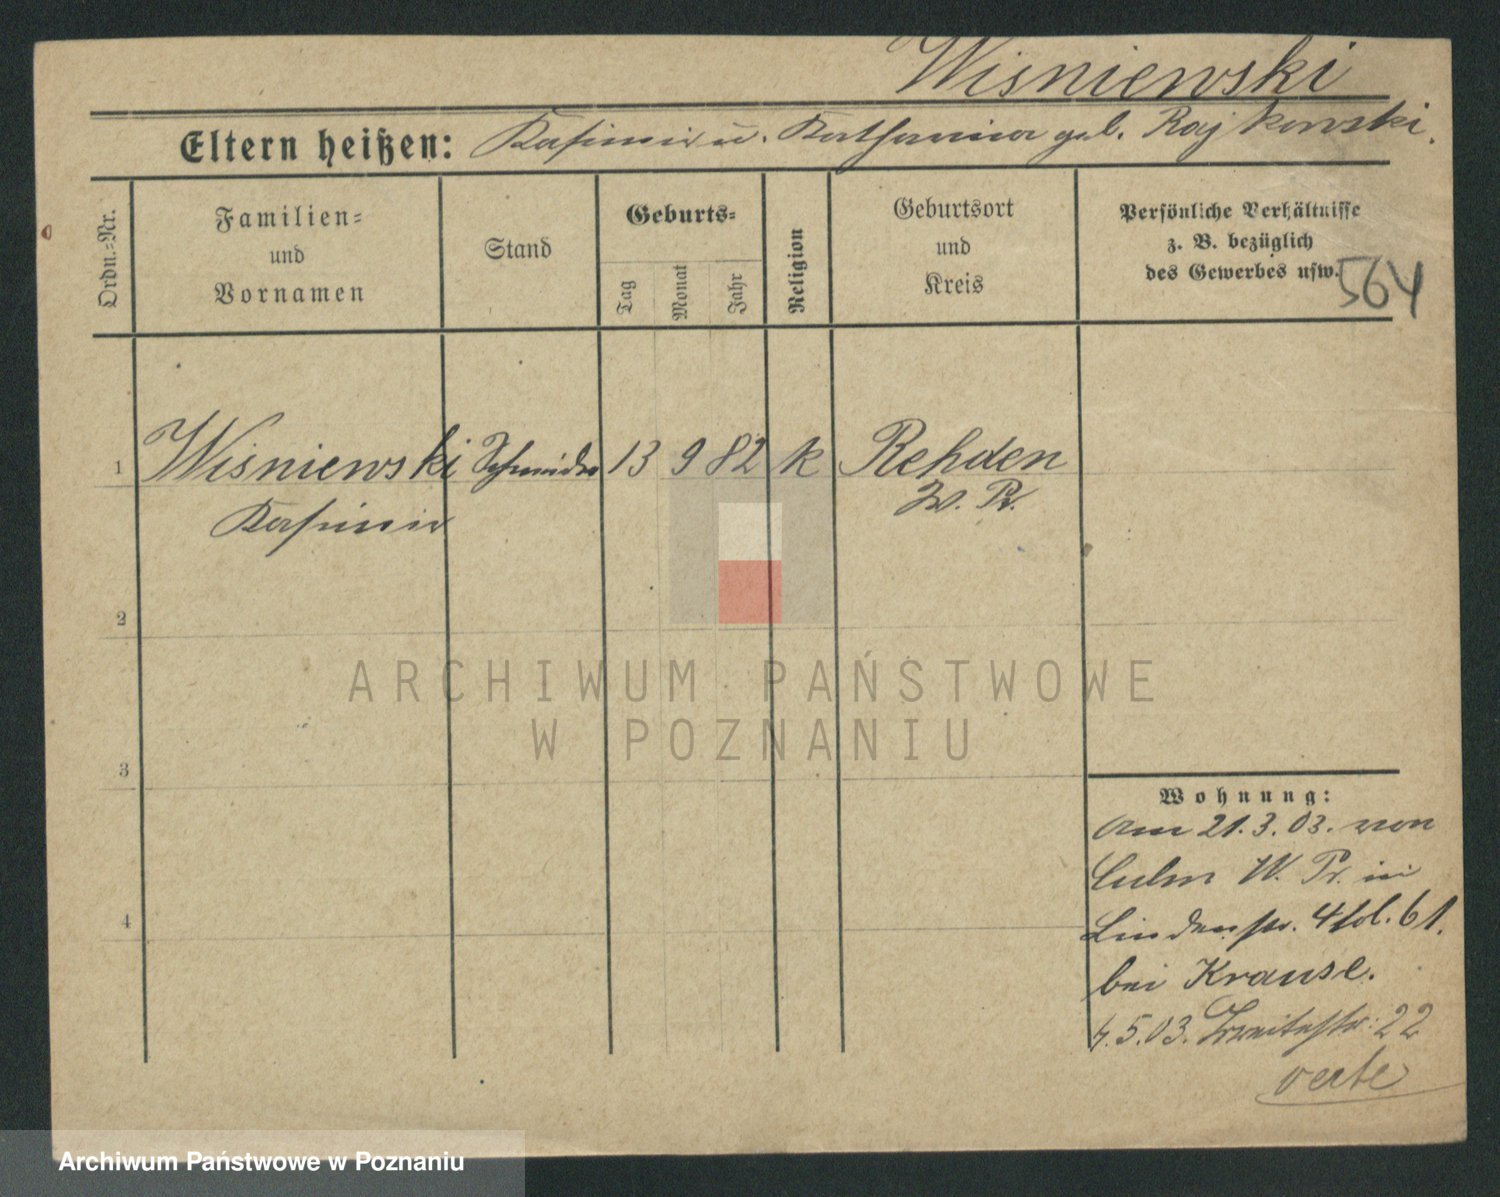 Wisniewski
Eltern heißen: Kasimir u. Katharina geb. Rajkowski.
Ordn.-Nr.
Familien-
und
Vornamen
Stand
Geburts-
Tag
Monat
Jahr
Religion
Geburtsort
und
Kreis
Persönliche Verhältnisse
z. B. bezüglich
des Gewerbes usw.
564
1 Wisniewski Schneider 13 9 82 k Rehden
Kasimir W. Pr.
2
3
4
Wohnung:
Am 21.3.03. von
Culm W. Pr. in
Lindenstr. 4 bei
Krause.
4.5.03. 22
verte
ARCHIWUM PAŃSTWOWE
W POZNANIU
Archiwum Państwowe w Poznaniu